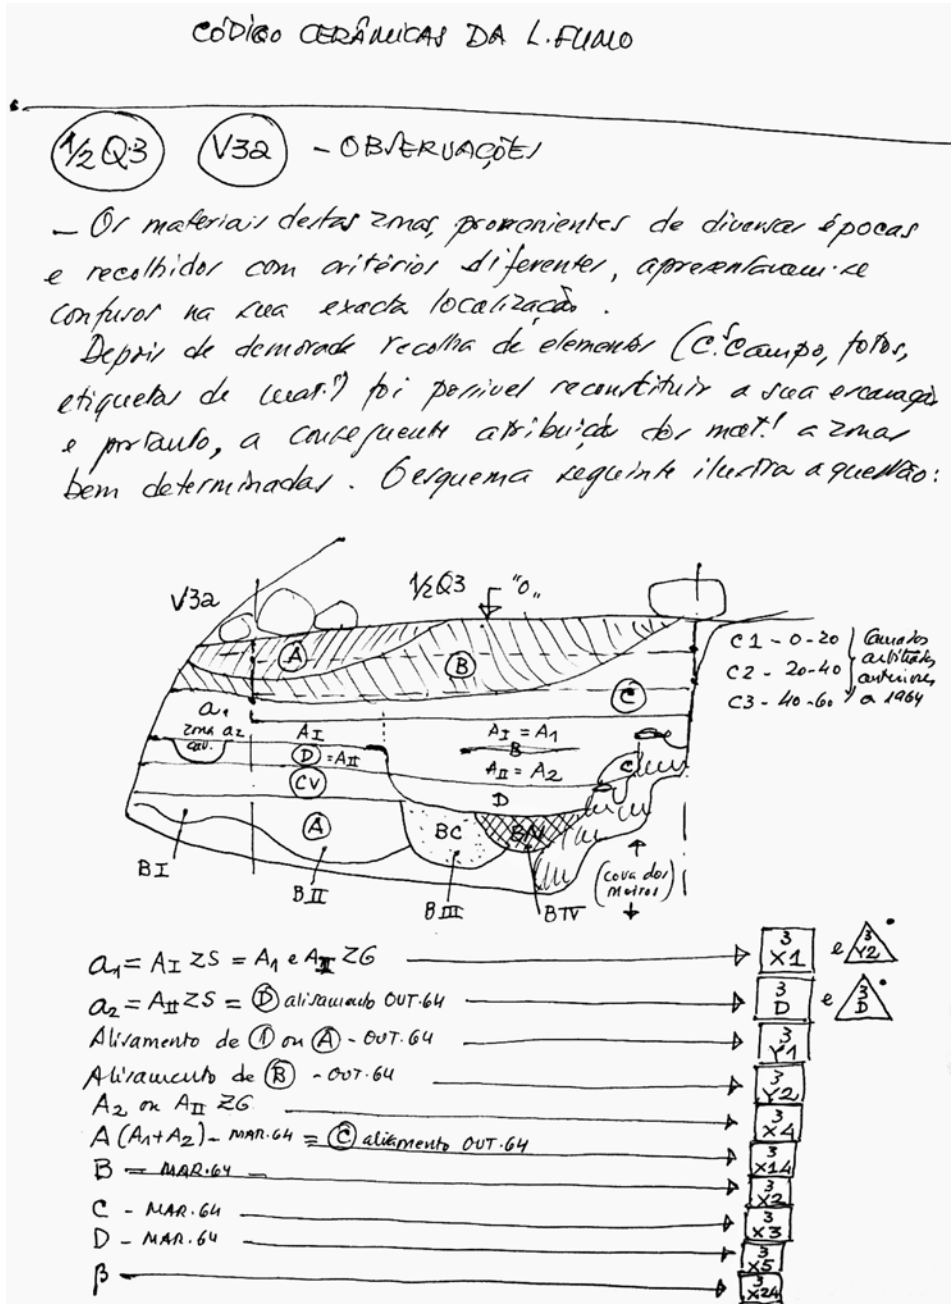 CÓDIGO CERÂMICAS DA L. FUMO
1/2 Q.3 V32 - OBSERVAÇÕES
- Os materiais destas zonas, provenientes de diversas épocas
e recolhidos com critérios diferentes, apresentavam-se
confusos na sua exacta localização.
Depois de demorada recolha de elementos (C.s Campo, fotos,
etiquetas de mat.l) foi possivel reconstituir a sua escavação
e portanto, a consequente atribuição dos mat.l a zonas
bem determinadas. O esquema seguinte ilustra a questão:
V32 1/2 Q3 "0"
A
B
C
C1 - 0-20
C2 - 20-40
C3 - 40-60
Camadas
arbitrárias
anteriores
a 1964
a1
zona a2
cav.
AI
D = AII
CV
A
AI = A1
B
AII = A2
C
D
BC
BN
BI
BII
BIII
BIV
(cova dos
moiros)
a1 = AI ZS = A1 e AII ZG 3 X1 e 3 Y2
a2 = AII ZS = D alisamento OUT.64 3 D e 3 D
Alisamento de 1 ou A - OUT.64 3 Y1
Alisamento de B - OUT.64 3 Y2
A2 ou AII ZG 3 X4
A (A1+A2) - MAR.64 = C alisamento OUT.64 3 X14
B - MAR.64 3 X2
C - MAR.64 3 X3
D - MAR.64 3 X5
β 3 X24